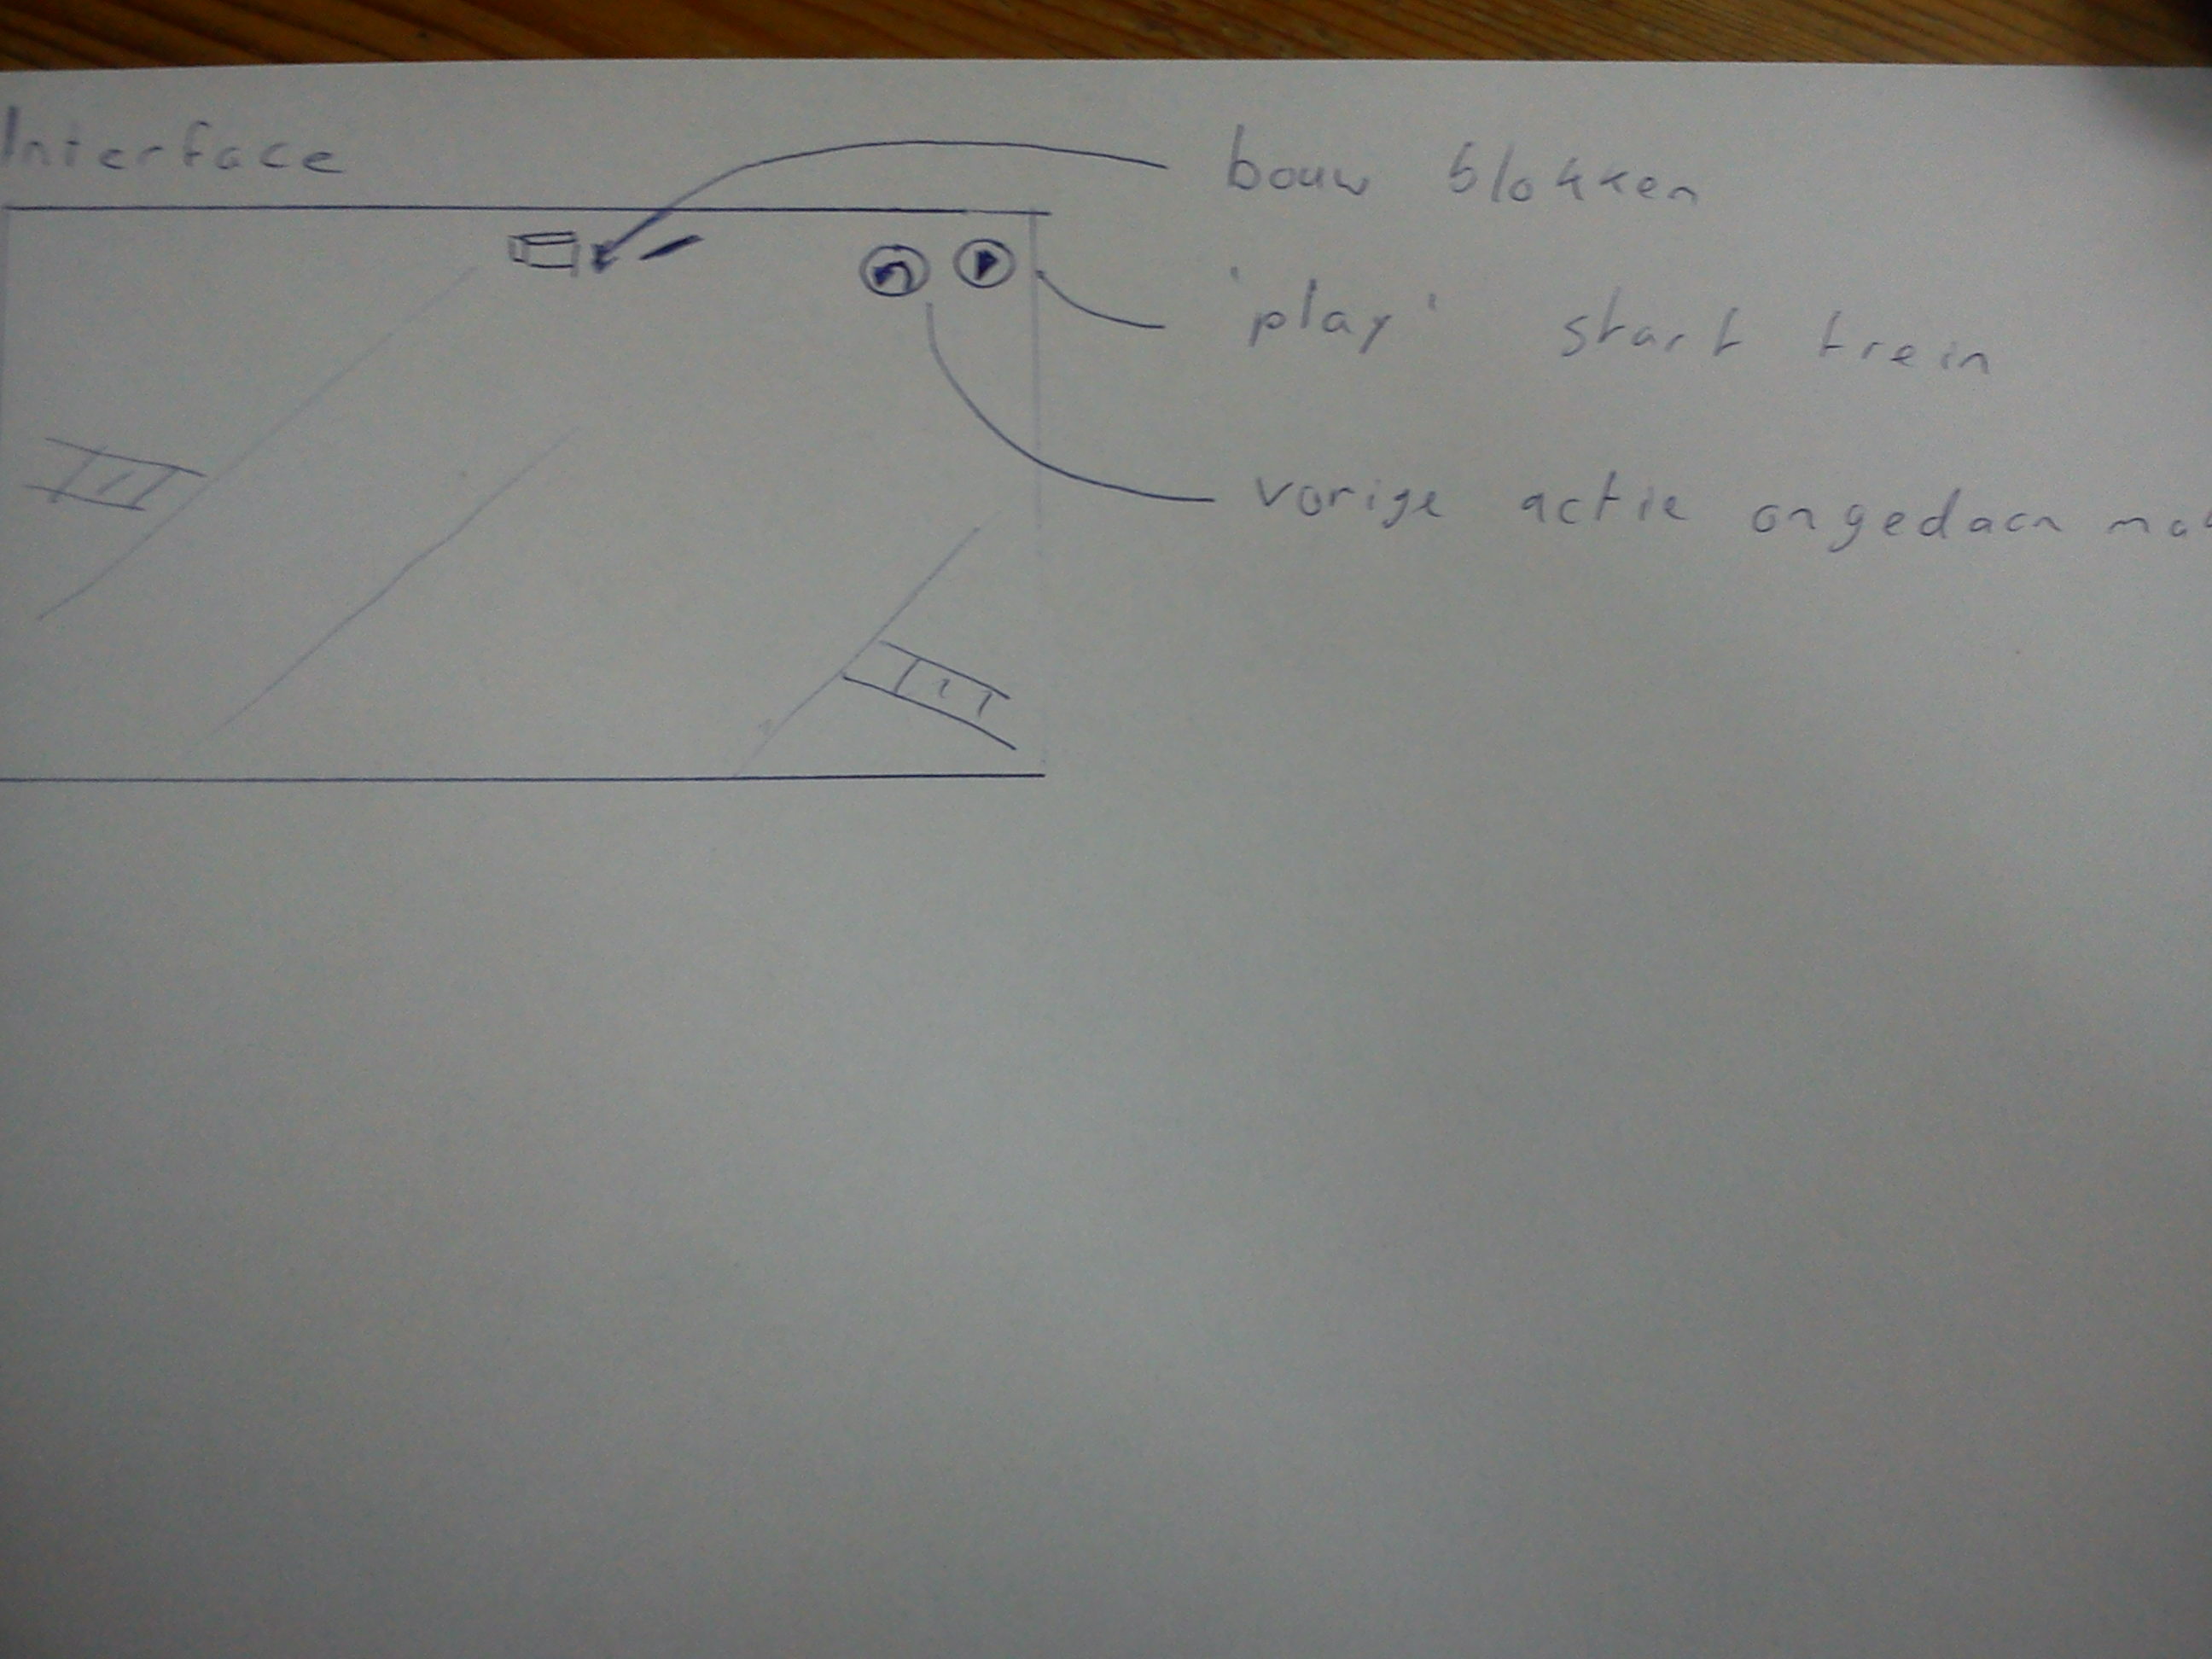 Interface
bouw blokken
'play' start trein
vorige actie ongedaan